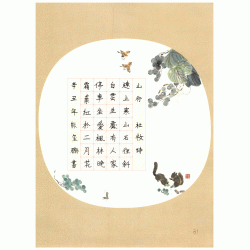 山行 杜牧詩
遠上寒山石徑斜
白雲生處有人家
停車坐愛楓林晚
霜葉紅於二月花
辛丑年 書